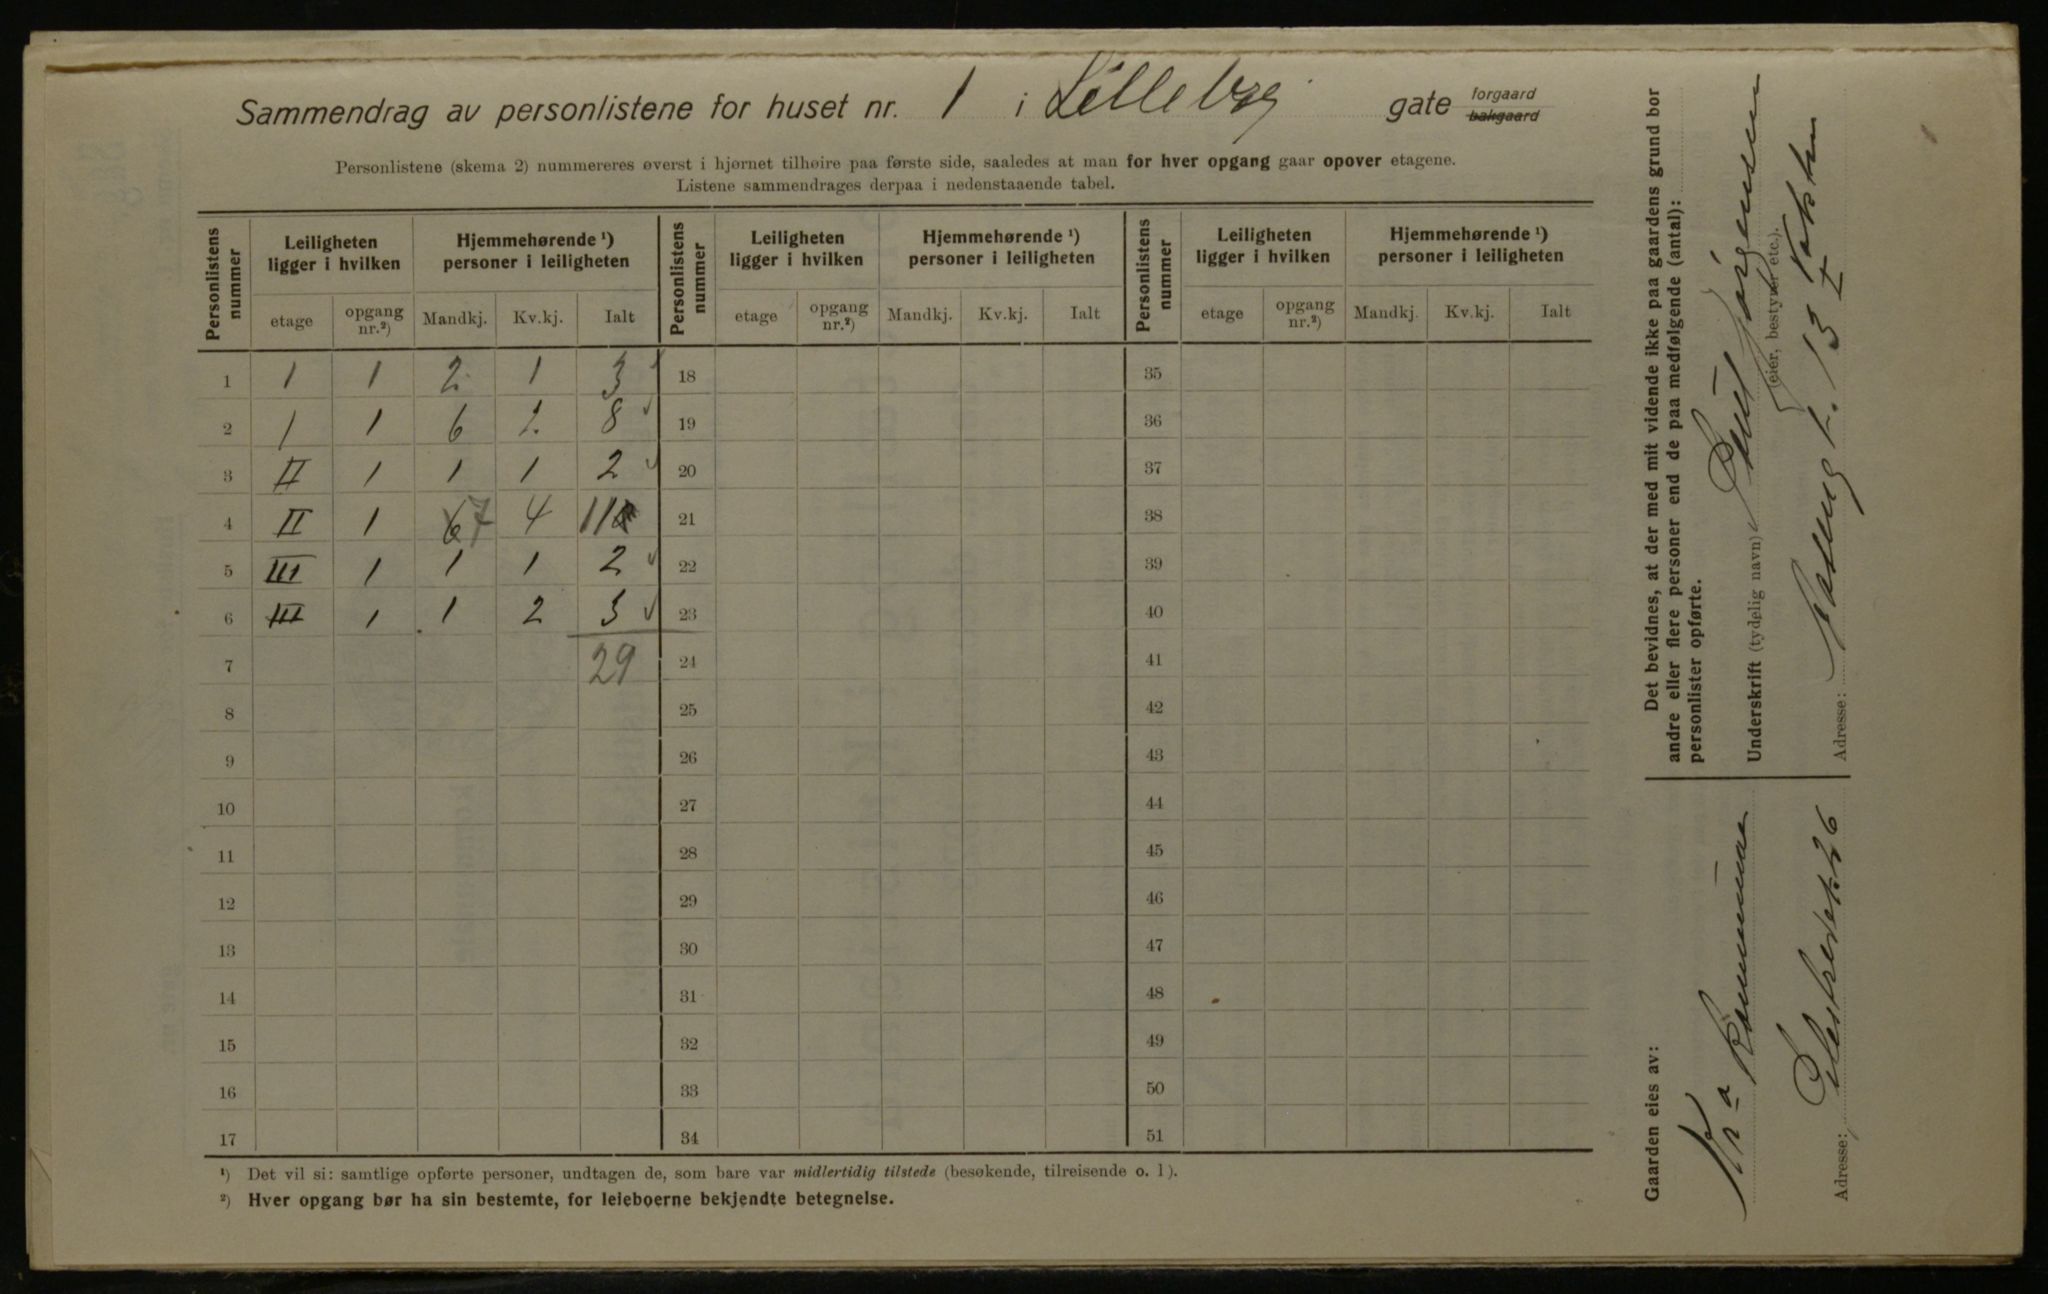 Sammendrag av personlistene for huset nr. 1 i Lilleborg gate forgaard bakgaard
Personlistene (skema 2) nummereres øverst i hjørnet tilhøire paa første side, saaledes at man for hver opgang gaar opover etagene.
Listene sammendrages derpaa i nedenstaaende tabel.
Personlistens nummer | Leiligheten ligger i hvilken | Hjemmehørende ¹) personer i leiligheten | Personlistens nummer | Leiligheten ligger i hvilken | Hjemmehørende ¹) personer i leiligheten | Personlistens nummer | Leiligheten ligger i hvilken | Hjemmehørende ¹) personer i leiligheten
etage | opgang nr.²) | Mandkj. | Kv.kj. | Ialt | etage | opgang nr.²) | Mandkj. | Kv.kj. | Ialt | etage | opgang nr.²) | Mandkj. | Kv.kj. | Ialt
1 | 1 | 1 | 2 | 1 | 3 | 18 | 35
2 | 1 | 1 | 6 | 2 | 8 | 19 | 36
3 | II | 1 | 1 | 1 | 2 | 20 | 37
4 | II | 1 | 6 7 | 4 | 11 | 21 | 38
5 | III | 1 | 1 | 1 | 2 | 22 | 39
6 | III | 1 | 1 | 2 | 3 | 23 | 40
7 | 29 | 24 | 41
8 | 25 | 42
9 | 26 | 43
10 | 27 | 44
11 | 28 | 45
12 | 29 | 46
13 | 30 | 47
14 | 31 | 48
15 | 32 | 49
16 | 33 | 50
17 | 34 | 51
¹) Det vil si: samtlige opførte personer, undtagen de, som bare var midlertidig tilstede (besøkende, tilreisende o. l).
²) Hver opgang bør ha sin bestemte, for leieboerne bekjendte betegnelse.
Gaarden eies av:
Kra Kommune
Adresse:
Det bevidnes, at der med mit vidende ikke paa gaardens grund bor
andre eller flere personer end de paa medfølgende (antal):
personlister opførte.
Underskrift (tydelig navn) Jörgensen
(eier, bestyrer etc.).
Adresse: 13 I